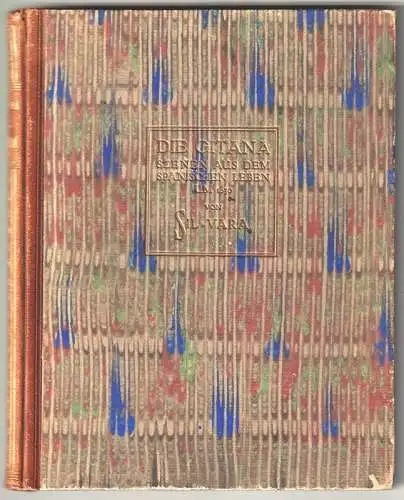 DIE GITANA
SZENEN AUS DEM
SPANISCHEN LEBEN
VON
SIL-VARA